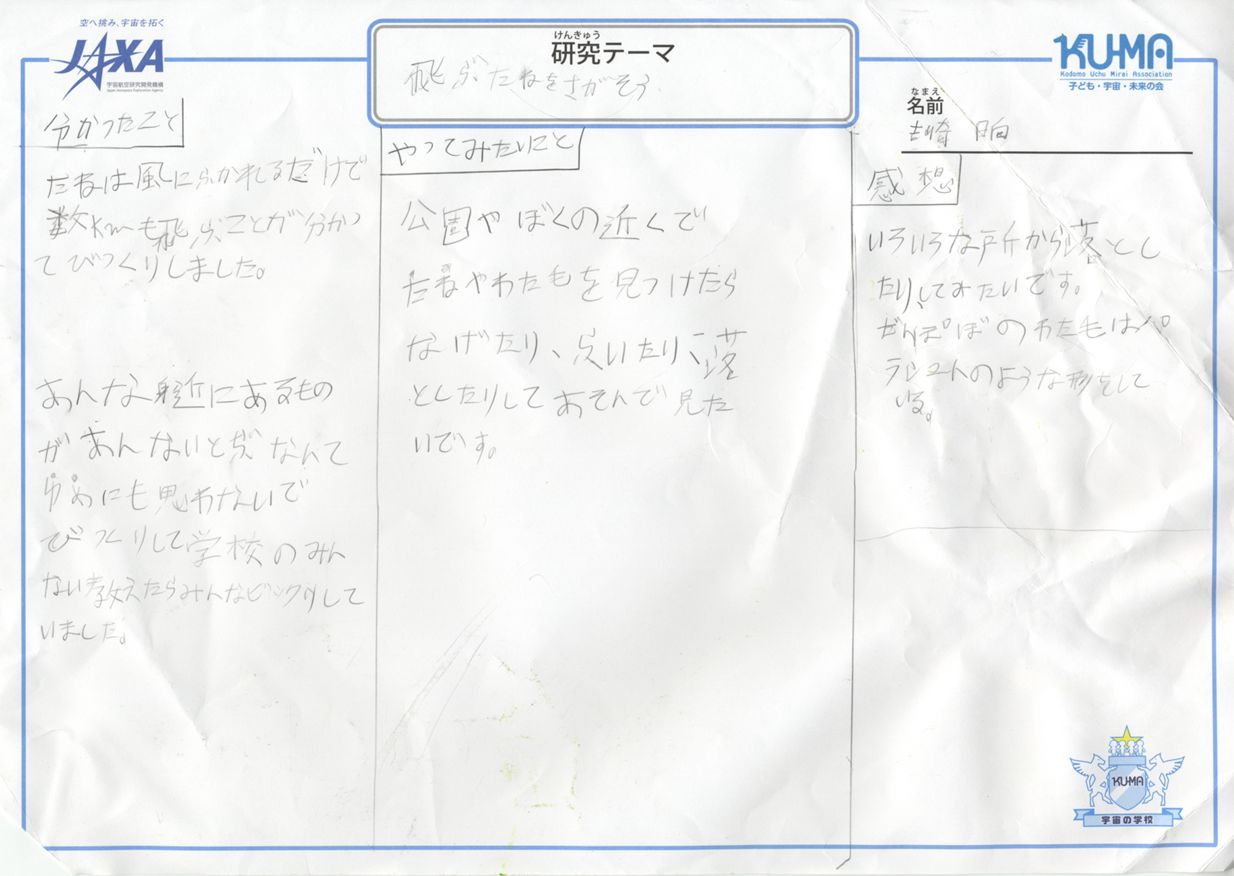 空へ挑み、宇宙を拓く
JAXA
宇宙航空研究開発機構
Japan Aerospace Exploration Agency
けんきゅう
研究テーマ
飛ぶたねをさがそう
KU-MA
Kodomo Uchu Mirai Association
子ども・宇宙・未来の会
なまえ
名前
崎 日向
分かったこと
たねは風にふかれるだけで
数Kmも飛ぶことが分かっ
てびっくりしました。
あんな身近にあるもの
があんないとぶなんて
ゆめにも思わないで
びっくりして学校のみん
ない教えたらみんなビックリして
いました。
やってみたいこと
公園やぼくの近くで
たねやわた毛を見つけたら
なげたり、吹いたり、落
としたりしてあそんで見た
いです。
感想
いろいろな所から落とし
たりしてみたいです。
ぜんぽぼのわた毛はパ
ラシュートのような形をして
いる。
KU-MA
宇宙の学校